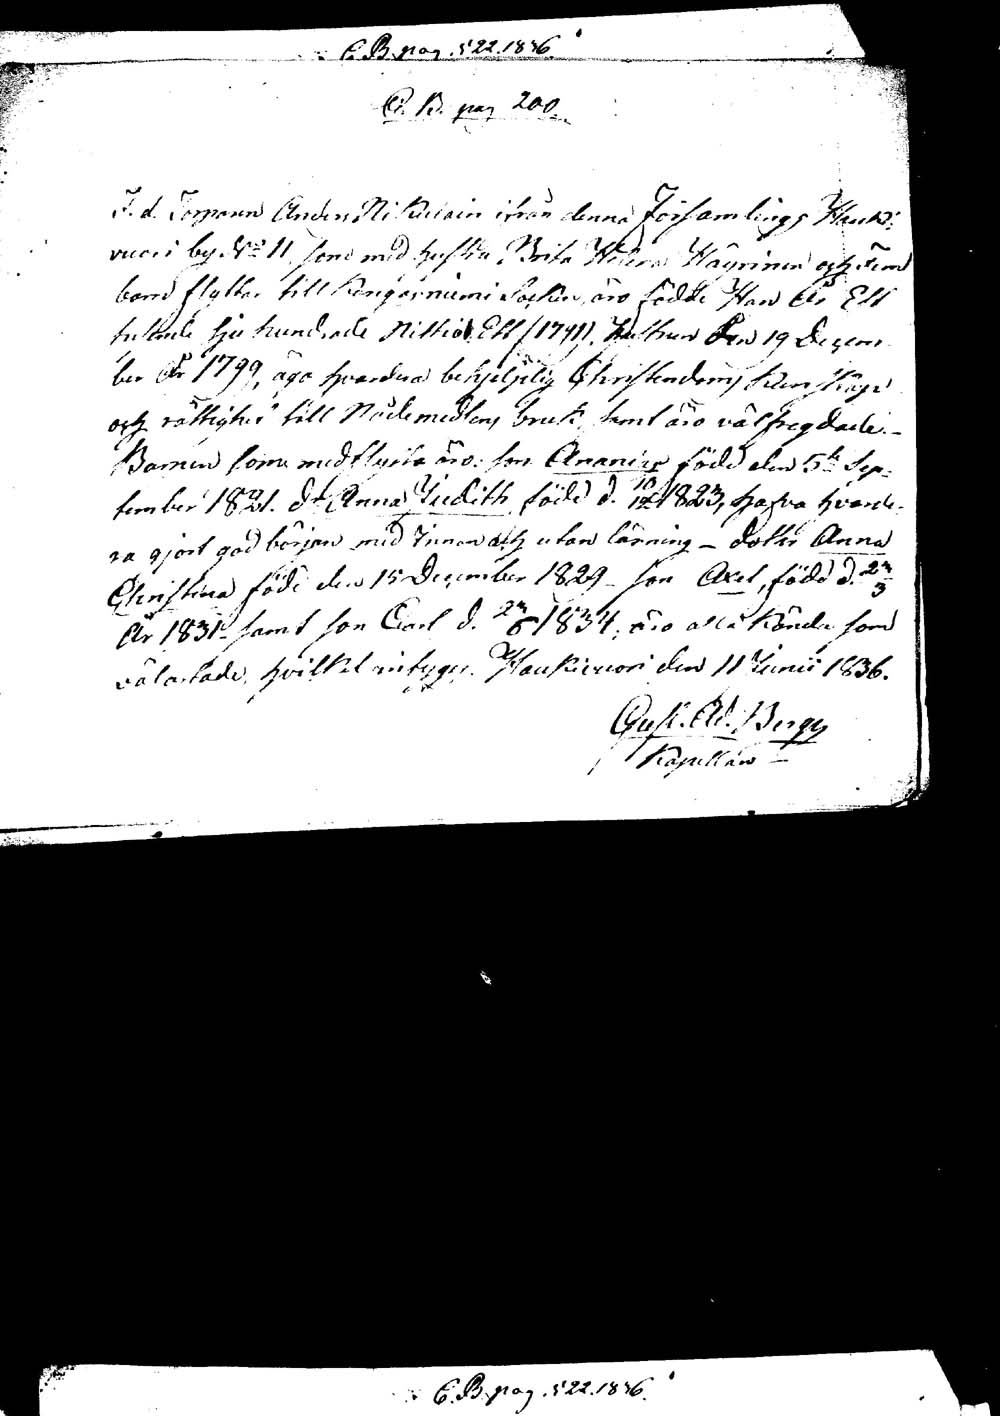 C. B. pag. 522. 1836.
C. B. pag 200.
F. d. Torparen Anders Nikulain ifrån denna Församlings Hauki-
vuori by No 11, som med hustru Brita Helena Häyrinen och Fem
barn flyttar till Kangasniemi Socken, äro födde Han År Ett
tusende sju hundrade Nittio Ett (1791), Hustrun den 19 Decem-
ber År 1799, äga hvardera behjelplig Christendoms Kunskap
och rättighet till Nådemedlens bruk, samt äro välfregdade. –
Barnen som medflytta äro: son Ananias född den 5te Sep-
tember 1821. dr Anna Judith född d. 1823, hafva hvarde-
ra gjort god början med innan och utan läsning – dotter Anna
Christina född den 15 December 1829 – son Axel, född d. 23/3
År 1831 – samt son Carl d. 23/6 1834, äro alla kända som
välartade, hvilket intygar. Haukivuori den 11 Junii 1836.
Gust. Ad. Bergh
Kapellan
C. B. pag. 522. 1836.